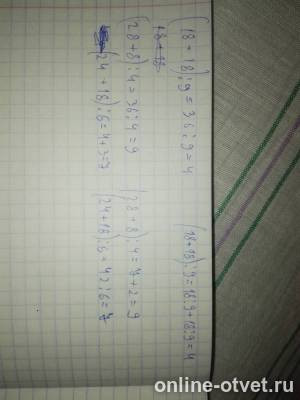 (18+18):9=36:9=4 (18+18):9=18:9+18:9=4
18+18
(28+8):4=36:4=9 (28+8):4=7+2=9
(24+18):6=4+3=7 (24+18):6=42:6=7
online-otvet.ru